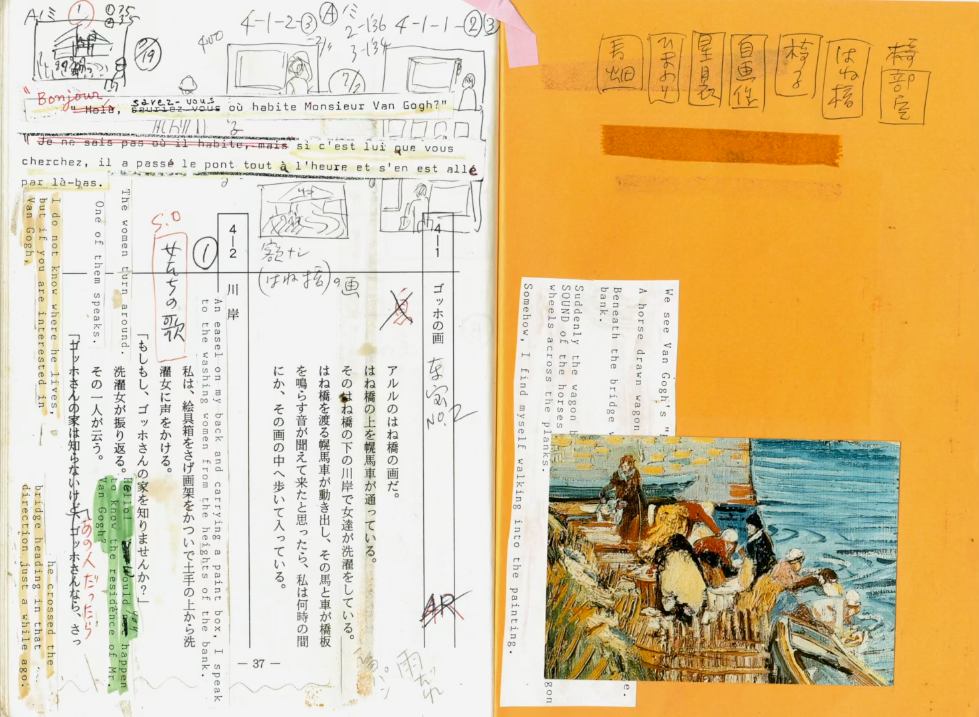 Aルミ ① ① 35
4-1-2-③ ④ ミ 4-1-1-②③
2-136
3-134
400
7/19
"Bonjour
"Holà, Sauriez-vous savez-vous où habite Monsieur Van Gogh?"
"Je ne sais pas où il habite, mais si c'est lui que vous
cherchez, il a passé le pont tout à l'heure et s'en est allé
par là-bas.
4—1 ゴッホの画
額ナシ
(はね橋)の画
東宝
NO.2
アルルのはね橋の画だ。
はね橋の上を幌馬車が通っている。
そのはね橋の下の川岸で女達が洗濯をしている。
はね橋を渡る幌馬車が動き出し、その馬と車が橋板
を鳴らす音が聞えて来たと思ったら、私は何時の間
にか、その画の中へ歩いて入っている。
4—2 川岸
①
S.O
せんちの歌
An easel on my back and carrying a paint box, I speak
to the washing women from the heights of the bank.
私は、絵具箱をさげ画架をかついで土手の上から洗
濯女に声をかける。
「もしもし、ゴッホさんの家を知りませんか?」
Hello! Would you happen
to know the residence of Mr.
Van Gogh?
The women turn around.
洗濯女が振り返る。
One of them speaks.
その一人が云う。
「ゴッホさんの家は知らないけど、ゴッホさんなら、さっ
あの人だったら
I do not know where he lives,
but if you are interested in
Van Gogh,
he crossed the
bridge heading in that
direction just a while ago.
— 37 —
椅部室
はね橋
椅子
自画像
星月夜
ひまわり
麦畑
We see Van Gogh's "
A horse drawn wagon
Beneath the bridge
bank.
Suddenly the wagon
SOUND of the horses
wheels across the planks.
Somehow, I find myself walking into the painting.